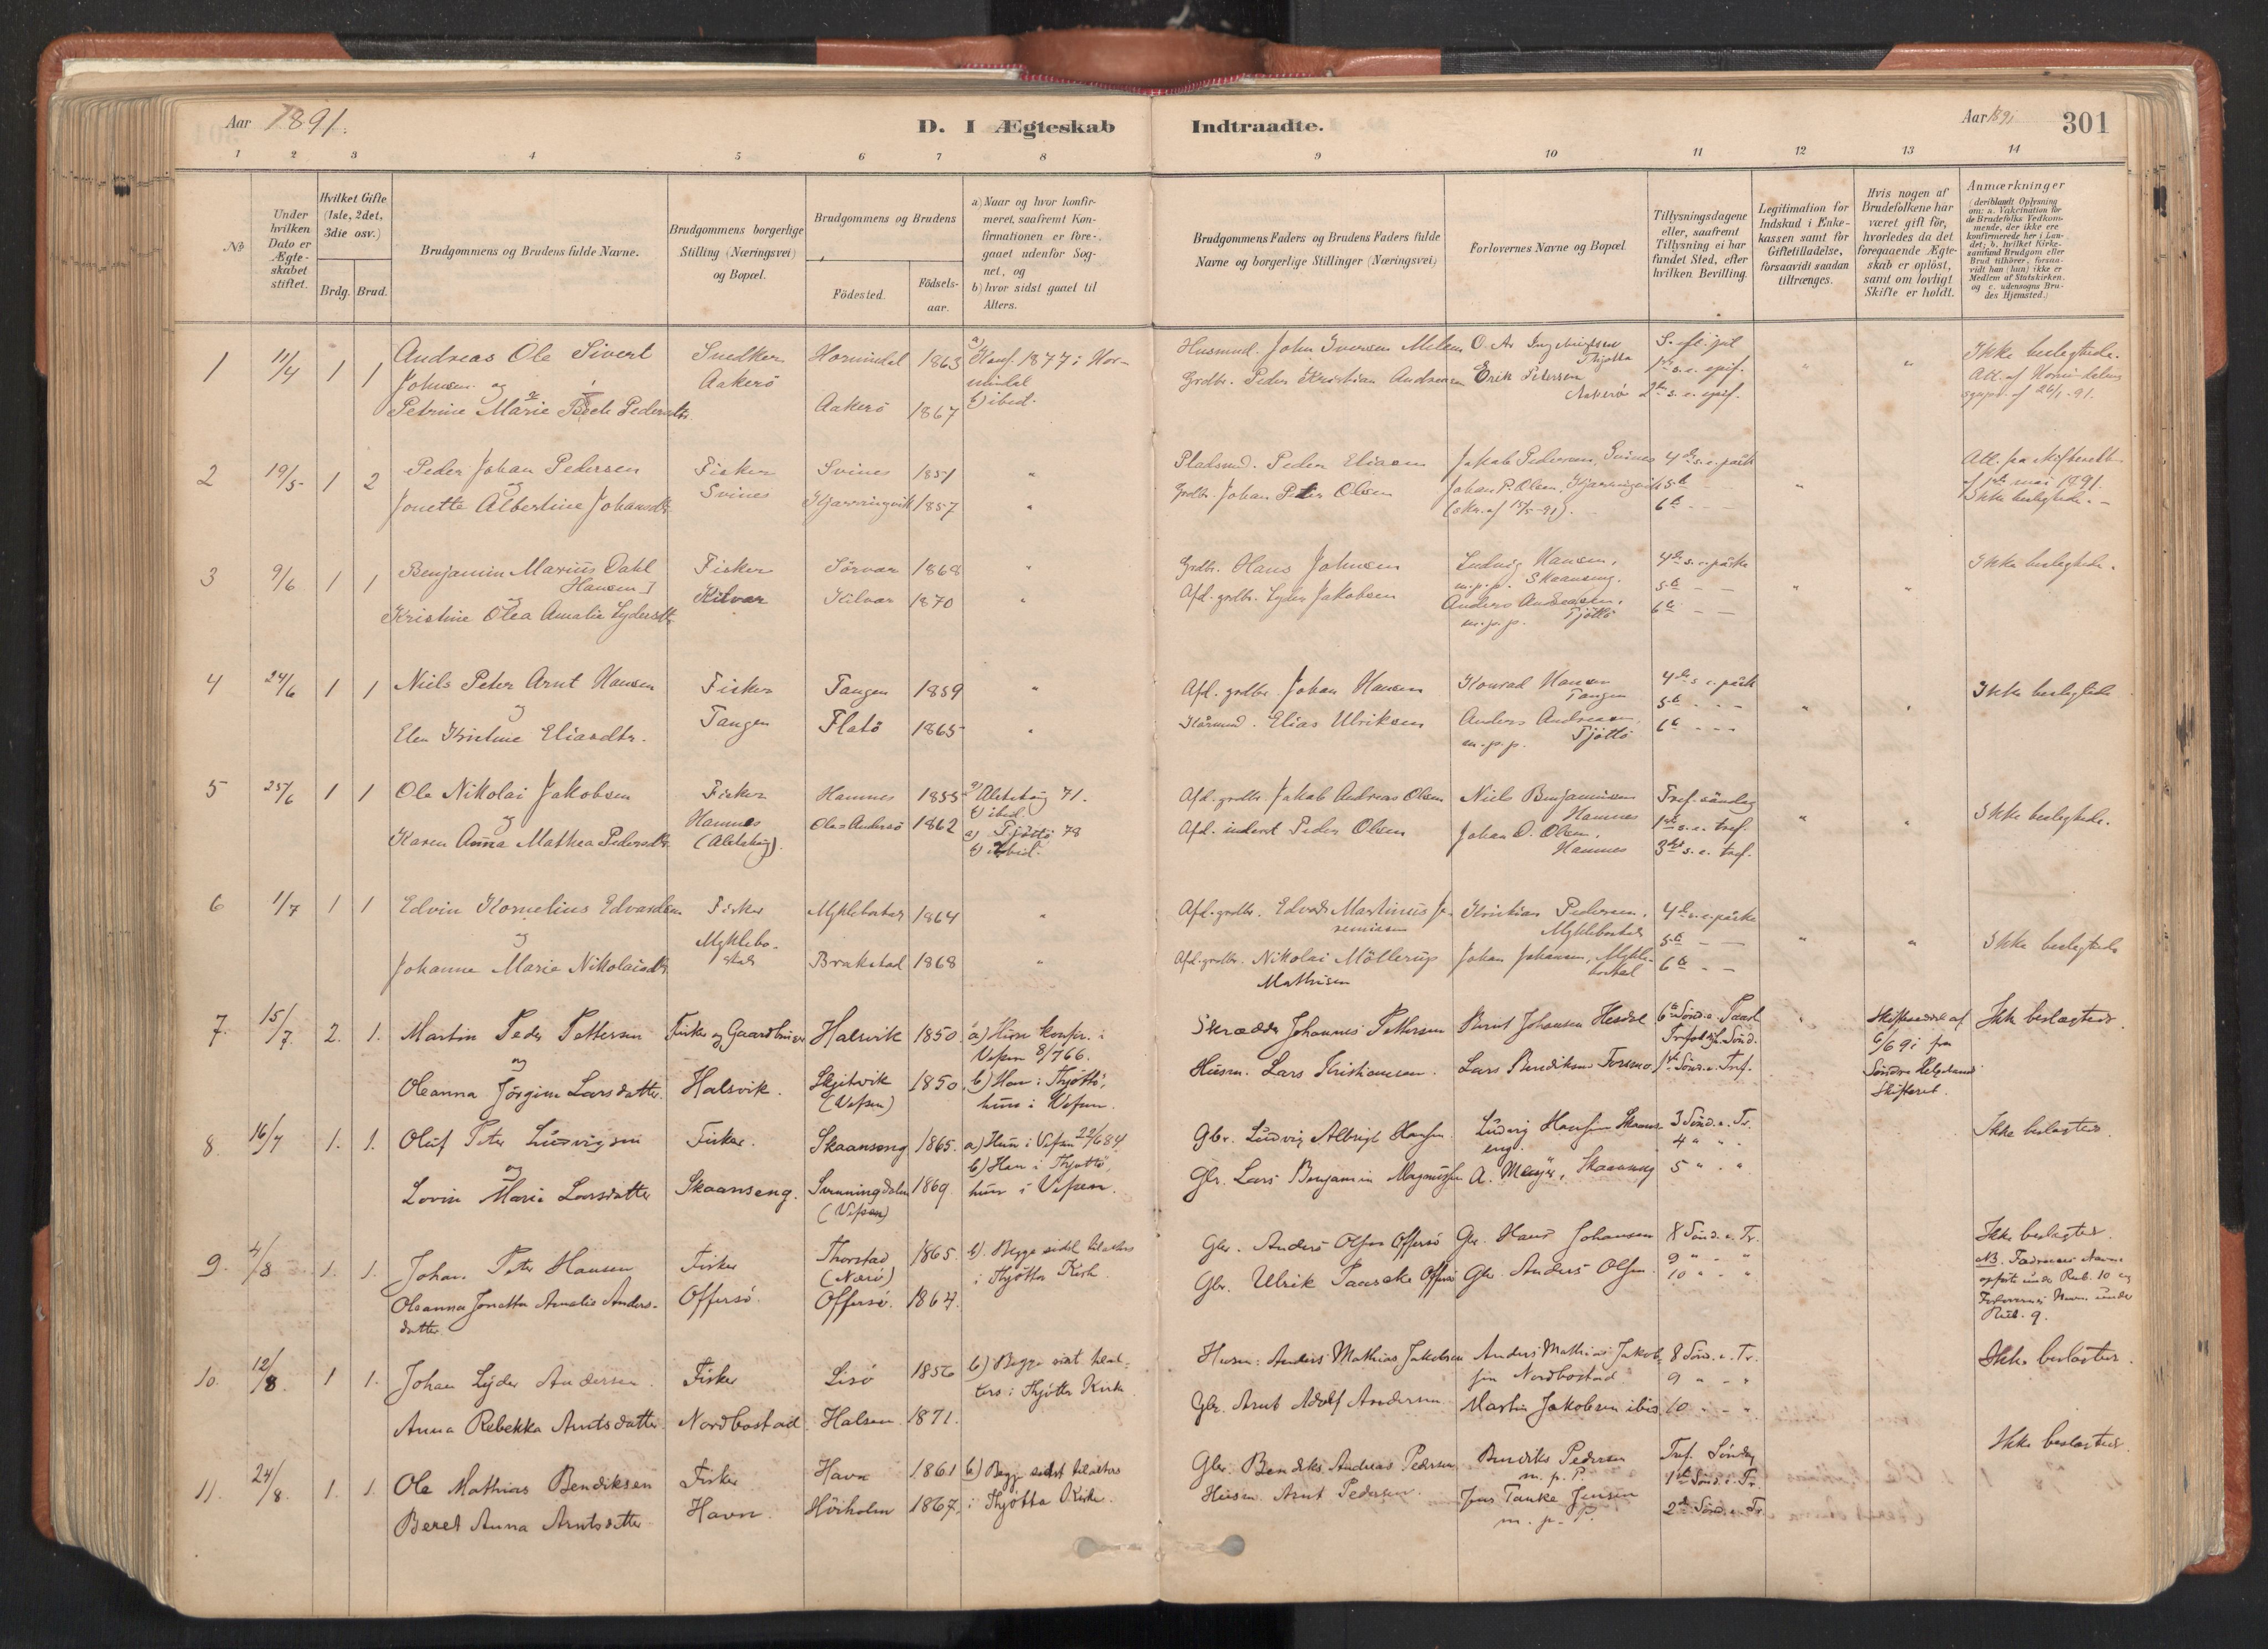 Aar 1891.
D. I Ægteskab Indtraadte.
Aar 1891 301
1 2 3 4 5 6 7 8 9 10 11 12 13 14
No
Under hvilken Dato er Ægteskabet stiftet.
Hvilket Gifte (1ste, 2det, 3die osv.)
Brdg. Brud.
Brudgommens og Brudens fulde Navne.
Brudgommens borgerlige Stilling (Næringsvei) og Bopæl.
Brudgommens og Brudens
Födested.
Födsels-aar.
a) Naar og hvor konfirmeret, saafremt Konfirmationen er foregaaet udenfor Sognet, og
b) hvor sidst gaaet til Alters.
Brudgommens Faders og Brudens Faders fulde Navne og borgerlige Stillinger (Næringsvei)
Forlovernes Navne og Bopæl
Tillysningsdagene eller, saafremt Tillysning ei har fundet Sted, efter hvilken Bevilling.
Legitimation for Indskud i Enkekassen samt for Giftetilladelse, forsaavidt saadan tiltrænges.
Hvis nogen af Brudefolkene har været gift för, hvorledes da det foregaaende Ægteskab er oplöst, samt om lovligt Skifte er holdt.
Anmærkninger
(deriblandt Oplysning om: a. Vakcination for de Brudefolks Vedkommende, der ikke ere konfirmerede her i Landet; b. hvilket Kirkesamfund Brudgom eller Brud tilhörer, forsaavidt han (hun) ikke er Medlem af Statskirken. og c. udensogns Brudes Hjemsted.)
1 11/4 1 1 Andreas Ole Sivert Johnsen og Petrine Marie Pedersdtr.
Snedker Aakerö
Hornindal 1863
Aakerö 1867
a) Konf. 1877 i Hornindal
b) ibid.
Husmd. John Iversen
Grdbr. Peder Kristian Andreasen
Erik Petersen Aakerö
1ste s. e. epif.
2den s. e. epif.
Ikke beslegtede.
2 19/5 1 2 Peder Johan Pedersen
og
Jonetta Albertine Johansdtr.
Fisker Svines
Svines 1851
Kjærringvik 1857
Pladsmd. Peder Eliasen
Grdbr. Johan Peter Olsen
Jakob Pedersen, Svines
Johan P. Olsen, Kjærringvik
4de s. e. paask
5te
6te
1ste mai 1891.
Ikke beslegtede.
3 9/6 1 1 Benjamin Marius Dahl Hansen
og
Kristine Olea Amalie Lydersdtr.
Fisker Kilvær
Sörvær 1868
Kilvær 1870
Grdbr. Hans Johnsen
Afd. grdbr. Lyder Jakobsen
Ludvig Hansen,
m. p. p. Skaanseng.
Anders Andreassen,
m. p. p. Tjöttö
4de s. e. paaske
5te
6te
Ikke beslegtede.
4 24/6 1 1 Niels Peter Arnt Hansen
og
Elen Kristine Eliasdtr.
Fisker Tangen
Tangen 1859
Flatö 1865
Afd. grdbr. Johan Hansen
Elias Ulriksen
Konrad Hansen Tangen
Anders Andreasen,
m. p. p. Tjöttö
4de s. e. paask
5te
6te
Ikke beslegtede
5 25/6 1 1 Ole Nikolai Jakobsen
og
Karen Anna Mathea Pedersdtr.
Fisker Hamnes (Alstahaug).
Hamnes 1855
1862
a) Alstahaug 71.
b) ibid.
a) Tjöttö 78
b) ibid.
Afd. grdbr. Jakob Andreas Olsen
Afd. inderst Peder Olsen
Niels Benjaminsen Hamnes
Johan O. Olsen, Hamnes
Tref. söndag
1ste s. e. tref.
3die s. e. tref.
Ikke beslegtede.
6 1/7 1 1 Edvin Kornelius Edvardsen
og
Johanne Marie Nikolaisdtr.
Fisker Myklebostad
Myklebostad 1864
Brakstad 1868
Afd. grdbr. Edvard Martinus Jeremiasen
Afd. grdbr. Nikolai Möllerup Mathisen
Kristian Pedersen, Myklebostad
Johan Johansen, Myklebostad
4de s. e. paaske
5te
6te
Ikke beslegtede
7. 15/7. 2. 1. Martin Peder Pettersen
og
Oleanna Jörgine Larsdatter
Fisker og Gaardbruger Halsvik.
Halsvik 1850
(Vefsen) 1850
a) Hun konfr. i Vefsen 8/7 66.
b) Han i Thjöttö, hun i Vefsen.
Skrædder Johannes Pettersen
Husm. Lars Kristiansen.
Lars Bendiksen Forsmo
6te Sönd. e. Paask
1ste Sönd. e. Tref.
Söndre Helgeland Skifteret.
Ikke beslægtede
8. 16/7 1. 1. Oluf Peter Ludvigsen
og
Lovise Marie Larsdatter
Fisker. Skaanseng.
Skaanseng 1865.
Svenningdalen (Vefsen) 1869
a) Hun i Vefsen 22/6 84
b) Han i Thjöttö, hun i Vefsen.
Gbr. Ludvig Albrigt Hansen
Gbr. Lars Benjamin Magnussen
Ludvig Hansen Skaanseng
A. Meyer, Skaanseng
3 Sönd. e. Tr.
4 " "
5 " "
Ikke beslægtede.
9. 4/8 1. 1. Johan Peter Hansen
Oleanna Jonetta Amalie Andersdatter
Fisker Offersö.
Thorstad (Nærö) 1865.
Offersö. 1867.
b). Begge sidst til alters i Thjötta Kirk
Gbr. Anders Olsen Offersö
Gbr. Ulrik Paaske Offersö
Gbr. Hans Johansen
Gbr. Anders Olsen
8 Sönd. e. Tr.
9 " "
10 " "
Ikke beslægtede.
NB. Fædrenes Navne opfört under Rub. 10 og Forlovernes Navn under Rub. 9.
10. 12/8. 1 1. Johan Lyder Andersen
Anna Rebekka Arntsdatter
Fisker Nordbostad
Lisö 1856
Halsen 1871.
b) Begge sidst til alters i Thjötta Kirke
Husm: Anders Mathias Jakobsen
Gbr. Arnt Adolf Andersen
Anders Mathias Jakobsen Nordbostad
Martin Jakobsen ibid.
8 Sönd. e. Tr.
9 " "
10 " "
Ikke beslægtede.
11. 24/8. 1. 1. Ole Mathias Bendiksen
Beret Anna Arntsdatter
Fisker Havn.
Havn 1861
Hörholm 1867.
b) Begge sidst til alters i Thjötta Kirke.
Gbr. Bendiks Andreas Pedersen
Husm. Arnt Pedersen.
Bendiks Pedersen
m. p. P
Jens Tanke Jensen
m. p. P.
Tref. Söndag
1ste Sönd. e. Tr.
2den Sönd. e. Tr.
Ikke beslægtede.